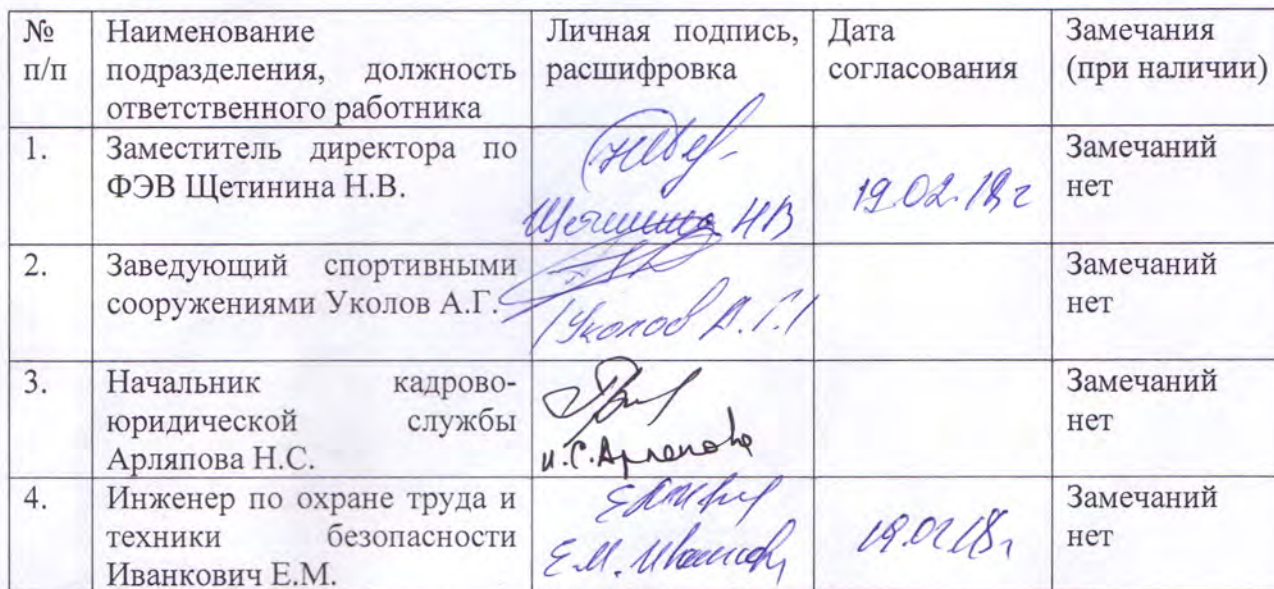 № п/п
Наименование
подразделения, должность
ответственного работника
Личная подпись,
расшифровка
Дата
согласования
Замечания
(при наличии)
1.
Заместитель директора по
ФЭВ Щетинина Н.В.
Щетинина НВ
19.02.18г
Замечаний
нет
2.
Заведующий спортивными
сооружениями Уколов А.Г.
/Уколов А.Г./
Замечаний
нет
3.
Начальник кадрово-
юридической службы
Арляпова Н.С.
Н.С.Арляпова
Замечаний
нет
4.
Инженер по охране труда и
техники безопасности
Иванкович Е.М.
Е.М. Иванкович
19.02.18г
Замечаний
нет